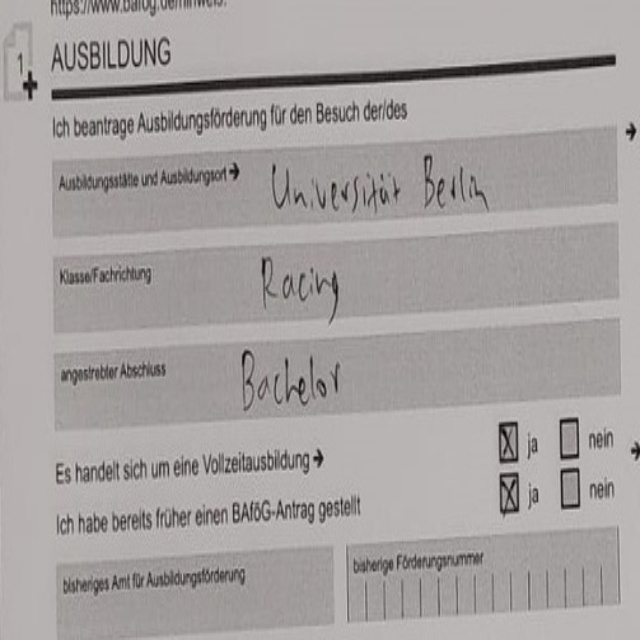 https://www.bafög.de/hinweis.
1
AUSBILDUNG
Ich beantrage Ausbildungsförderung für den Besuch der/des
Ausbildungsstätte und Ausbildungsort → Universität Berlin
Klasse/Fachrichtung Racing
angestrebter Abschluss Bachelor
Es handelt sich um eine Vollzeitausbildung → X ja nein
Ich habe bereits früher einen BAföG-Antrag gestellt X ja nein
bisheriges Amt für Ausbildungsförderung bisherige Förderungsnummer